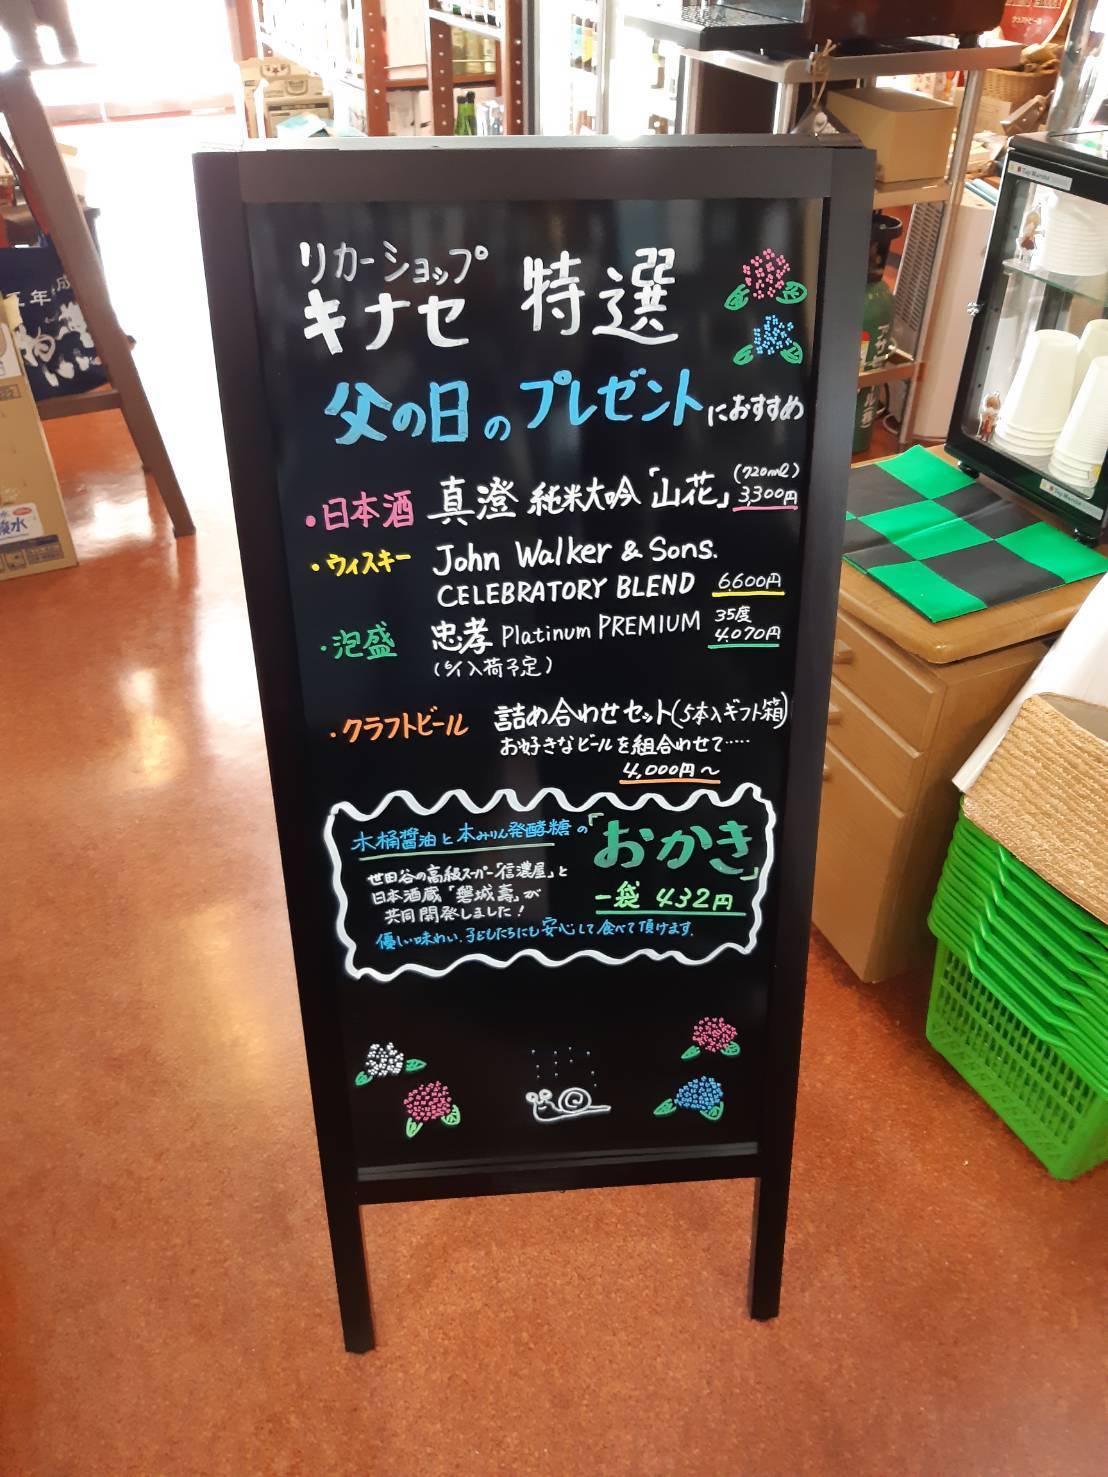 リカーショップ
キナセ 特選
父の日のプレゼントにおすすめ
・日本酒 真澄 純米大吟「山花」(720ml) 3,300円
・ウィスキー John Walker & Sons.
CELEBRATORY BLEND 6,600円
・泡盛 忠孝 Platinum PREMIUM 35度 4,070円
(6/1入荷予定)
・クラフトビール 詰め合わせセット(5本入ギフト箱)
お好きなビールを組合わせて……
4,000円〜
木桶醤油と本みりん発酵糖の「おかき」
一袋 432円
世田谷の高級スーパー「信濃屋」と
日本酒蔵「磐城壽」が
共同開発しました!
優しい味わい、子どもたちにも安心して食べて頂けます。